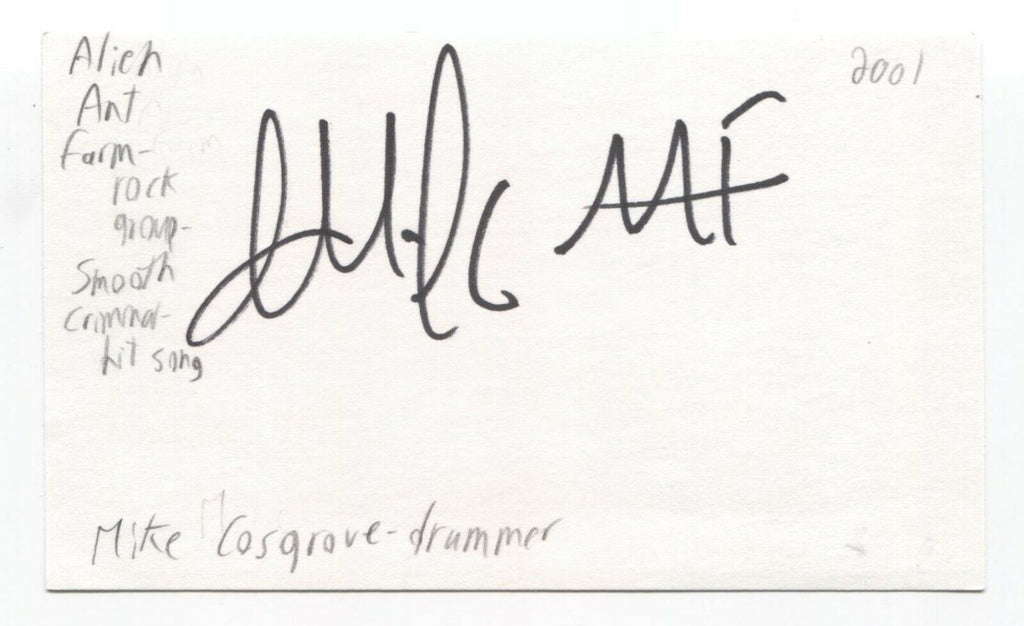 Alien
Ant
farm-
rock
group-
Smooth
criminal-
hit song
2001
AAF
Mike Cosgrove-drummer